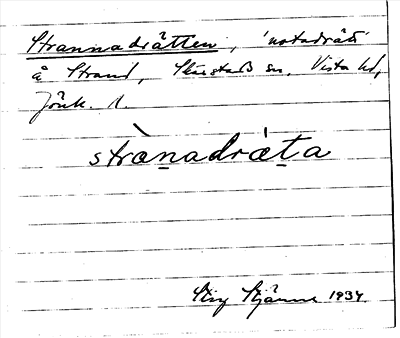 Strannadrätten, 'notadrätt'
å Strand, Skärstads sn, Vista hd,
Jönk. l.
stràn̲adrát̲a
Stig Stjärne 1934